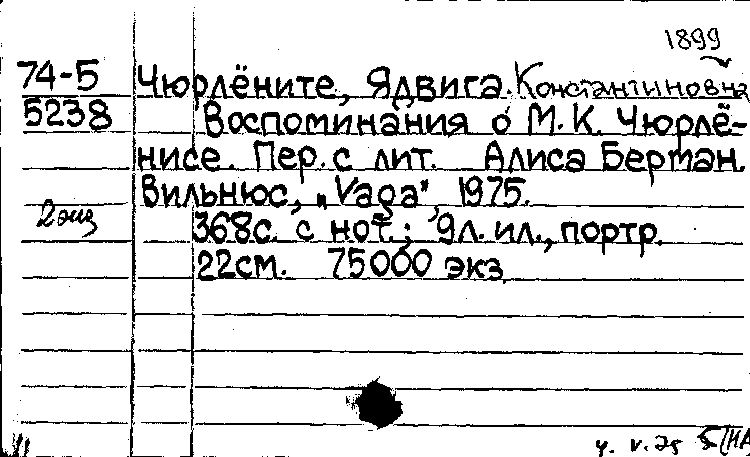 1899
74-5 Чюрлёните, Ядвига. Константиновна
5238 Воспоминания о М. К. Чюрлё-
нисе. Пер. с лит. Алиса Берман.
Вильнюс, „Vaga", 1975.
2 экз 368с. с нот.; 9л. ил., портр.
22см. 75000 экз.